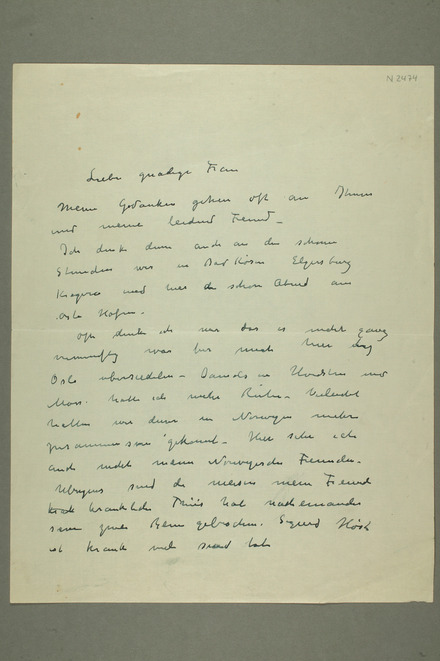 N 2474
Liebe gnädige Frau
Meine Gedanken gehen oft an Ihnen
und meine Freund –
Ich denke dann auch an die schönen
Stunden wir in Bad Kösen Elgersburg
Kragerø und hier die schön Abend am
Oslo Hafen.
Oft denke ich war das es nicht ganz
vernünftig war bei mich hier
Oslo übersiedeln – Damals in Hvidsten und
Moss hatte ich mehr Ruhe – Vielleicht
hatten wir dann in Norwegen mehr
zusammen sein gekonnt – Hier sehe ich
auch nicht meine Norwegische Freunden –
Übrigens sind die meisten mein Freund
Thiis hat nacheinander
seine zwei Beine gebrochen. Sigurd Höst
ist krank und